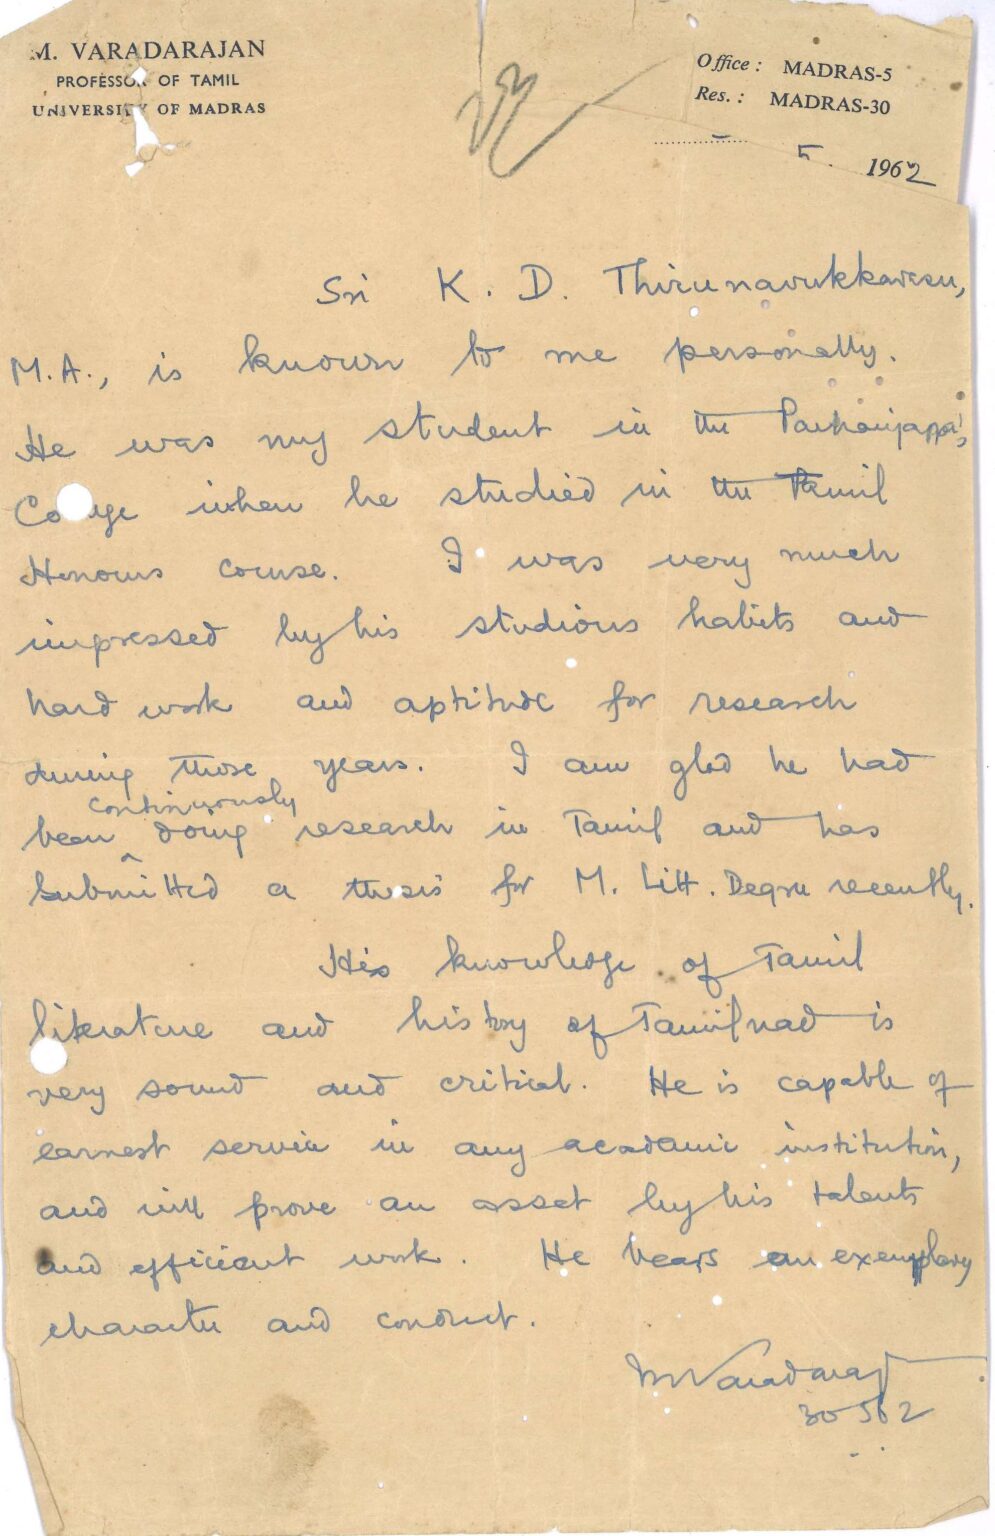 M. VARADARAJAN
PROFESSOR OF TAMIL
UNIVERSITY OF MADRAS
Office : MADRAS-5
Res. : MADRAS-30
5. 1962
Sri K. D. Thirunavukkarasu,
M.A., is known to me personally.
He was my student in the Pachaiyappa's
College when he studied in the Tamil
Honours course. I was very much
impressed by his studious habits and
hard work and aptitude for research
during those years. I am glad he had
been continuously doing research in Tamil and has
submitted a thesis for M. Litt. Degree recently.
His knowledge of Tamil
literature and history of Tamilnad is
very sound and critical. He is capable of
earnest service in any academic institution,
and will prove an asset by his talents
and efficient work. He bears an exemplary
character and conduct.
M Varadaraj
30 5 62